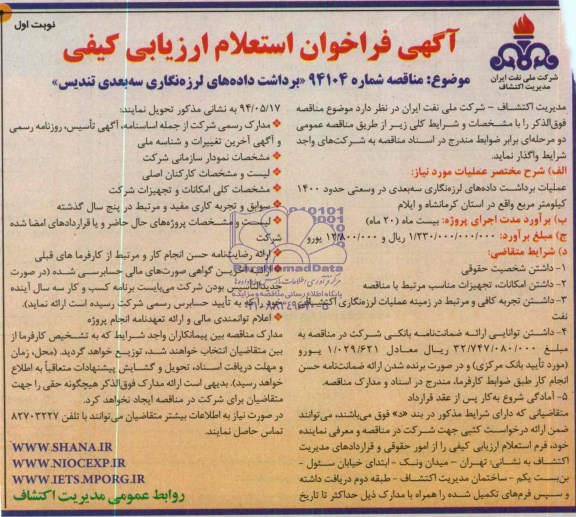 نوبت اول
آگهی فراخوان استعلام ارزیابی کیفی
شرکت ملی نفت ایران
مدیریت اکتشاف
موضوع: مناقصه شماره ۹۴۱۰۴ «برداشت داده‌های لرزه‌نگاری سه‌بعدی تندیس»
مدیریت اکتشاف - شرکت ملی نفت ایران در نظر دارد موضوع مناقصه
فوق‌الذکر را با مشخصات و شرایط کلی زیر از طریق مناقصه عمومی
دو مرحله‌ای برابر ضوابط مندرج در اسناد مناقصه به شرکت‌های واجد
شرایط واگذار نماید.
الف) شرح مختصر عملیات مورد نیاز:
عملیات برداشت داده‌های لرزه‌نگاری سه‌بعدی در وسعتی حدود ۱۴۰۰
کیلومتر مربع واقع در استان کرمانشاه و ایلام
ب) برآورد مدت اجرای پروژه: بیست ماه (۲۰ ماه)
ج) مبلغ برآورد: ۱/۲۳۰/۰۰۰/۰۰۰/۰۰۰ ریال و ۱۲/۸۰۰/۰۰۰ یورو
د) شرایط متقاضی:
۱- داشتن شخصیت حقوقی
۲- داشتن امکانات، تجهیزات مناسب مرتبط با مناقصه
۳- داشتن تجربه کافی و مرتبط در زمینه عملیات لرزه‌نگاری اکتشافی
نفت
۴- داشتن توانایی ارائه ضمانت‌نامه بانکی شرکت در مناقصه به
مبلغ ۳۲/۷۴۷/۰۸۰/۰۰۰ ریال معادل ۱/۰۲۹/۶۲۱ یورو
(مورد تأیید بانک مرکزی) و در صورت برنده شدن ارائه ضمانت‌نامه حسن
انجام کار طبق ضوابط کارفرما، مندرج در اسناد و مدارک مناقصه.
۵- آمادگی شروع به‌کار پس از عقد قرارداد
متقاضیانی که دارای شرایط مذکور در بند «د» فوق می‌باشند، می‌توانند
ضمن ارائه درخواست کتبی جهت شرکت در مناقصه و معرفی نماینده
خود، فرم استعلام ارزیابی کیفی را از امور حقوقی و قراردادهای مدیریت
اکتشاف به نشانی: تهران - میدان ونک - ابتدای خیابان سئول -
بن‌بست یکم - ساختمان مدیریت اکتشاف - طبقه دوم دریافت داشته
و سپس فرم‌های تکمیل شده را همراه با مدارک ذیل حداکثر تا تاریخ
۹۴/۰۵/۱۷ به نشانی مذکور تحویل نمایند:
مدارک رسمی شرکت از جمله اساسنامه، آگهی تأسیس، روزنامه رسمی
و آگهی آخرین تغییرات و شناسه ملی
مشخصات نمودار سازمانی شرکت
لیست و مشخصات کارکنان اصلی
مشخصات کلی امکانات و تجهیزات شرکت
سوابق و تجربه کاری مفید و مرتبط در پنج سال گذشته
لیست و مشخصات پروژه‌های حال حاضر و یا قراردادهای امضا شده
شرکت
ارائه رضایت‌نامه حسن انجام کار و مرتبط از کارفرما های قبلی
گواهی صورت‌های مالی حسابرسی شده (در صورت
جدیدالتأسیس بودن شرکت می‌بایست برنامه کسب و کار سه سال آینده
خود را که به تأیید حسابرس رسمی شرکت رسیده است ارائه نماید).
اعلام توانمندی مالی و ارائه تعهدنامه انجام پروژه
مدارک مناقصه بین پیمانکاران واجد شرایط که به تشخیص کارفرما از
بین متقاضیان انتخاب خواهند شد، توزیع خواهد گردید. (محل، زمان
و مهلت دریافت اسناد، تحویل و گشایش پیشنهادات متعاقباً به اطلاع
خواهد رسید). بدیهی است ارائه مدارک فوق‌الذکر هیچگونه حقی را جهت
متقاضیان برای شرکت در مناقصه ایجاد نخواهد کرد.
در صورت نیاز به اطلاعات بیشتر متقاضیان می‌توانند با تلفن ۸۳۷۰۳۲۲۷
تماس حاصل نمایند.
WWW.SHANA.IR
WWW.NIOCEXP.IR
WWW.IETS.MPORG.IR
روابط عمومی مدیریت اکتشاف